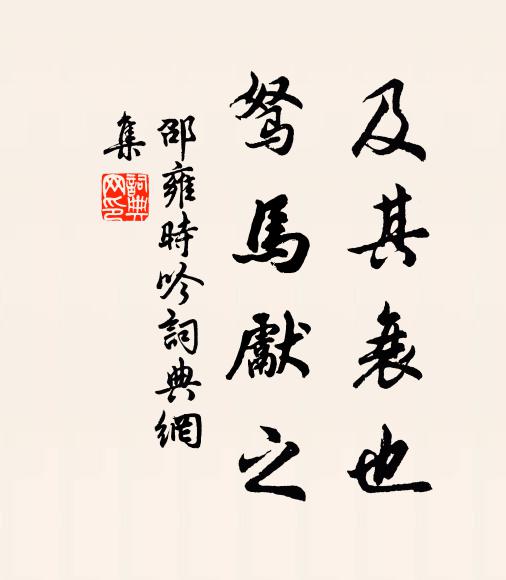 及其衰也
駑馬獻之
邵雍時吟詞典網
集
詞典网印